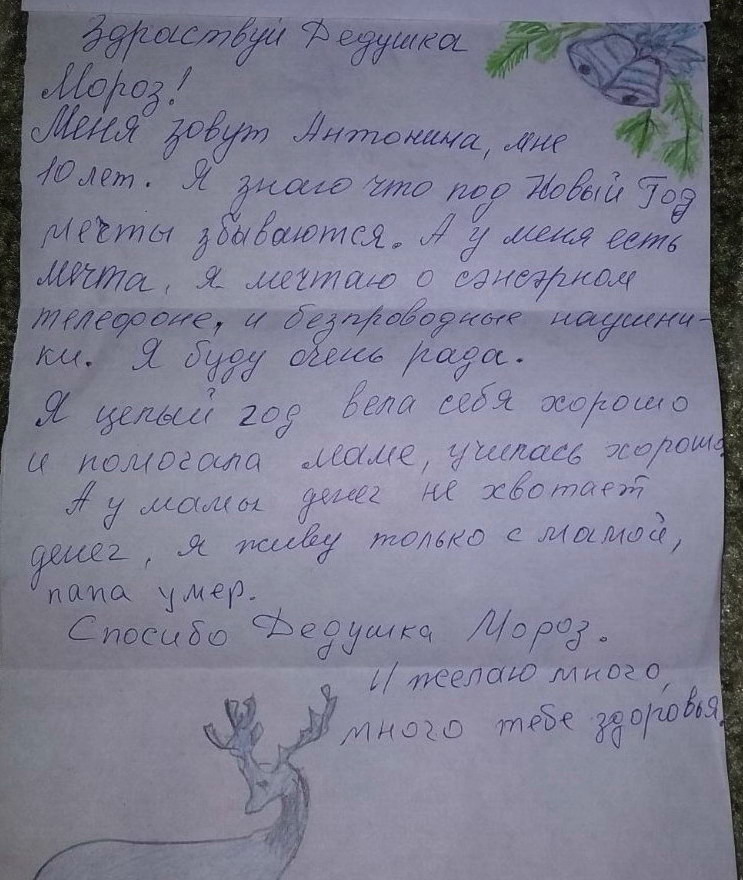 Здраствуй Дедушка
Мороз!
Меня зовут Антонина, мне
10 лет. Я знаю что под Новый Год
мечты збываются. А у меня есть
мечта, я мечтаю о сэнсэрном
телефоне, и безпроводные наушни-
ки. Я буду очень рада.
Я целый год вела себя хорошо
и помогала маме, училась хорошо
А у мамы денег не хвотает
денег, я живу только с мамой,
папа умер.
Спосибо Дедушка Мороз.
И желаю много,
много тебе здоровья.